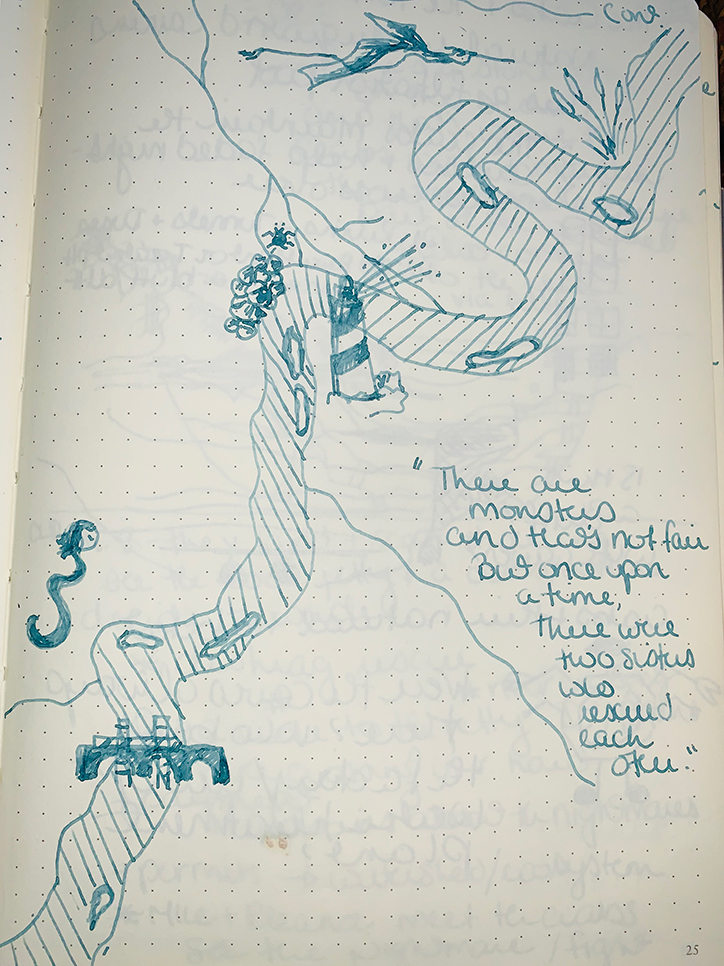 Cove
"There are
monsters
and that's not fair
But once upon
a time,
there were
two sisters
who
rescued
each
other."
25